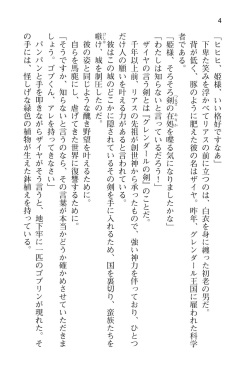 4
「ヒヒヒ、姫様、いい格好ですなあ」
下卑た笑みを浮かべてリアスの前に立つのは、白衣を身に纏った初老の男だ。
背が低く、豚のように肥えた彼の名はザイヤ。昨年、グレンダール王国に雇われた科学
者である。
「姫様、そろそろ剣の在処を喋る気になりましたかな」
「わたしは知らないと言っているだろう！」
ザイヤの言う剣とは『グレンダールの剣』のことだ。
千年以上前、リアスの先祖が創世神から承ったもので、強い神力を伴っており、ひとつ
だけ人の願いを叶える力があると言われている。
彼はこの城のどこかに隠されているその剣を手に入れるため、国を裏切り、蛮族たちを
嗾け、城を制圧した。
彼の姿と同じような醜き野望を叶えるために。
自らを馬鹿にし、虐げてきた世界に復讐するために。
「そうですか、知らないと言うのなら、その言葉が本当かどうか確かめさせていただきま
しょう。ゴブくん、アレを持ってきなさい」
パンパンと手を叩きながらザイヤがそう言うと、地下牢に一匹のゴブリンが現れた。そ
の手には、怪しげな緑色の植物が生えた鉢植えを持っている。